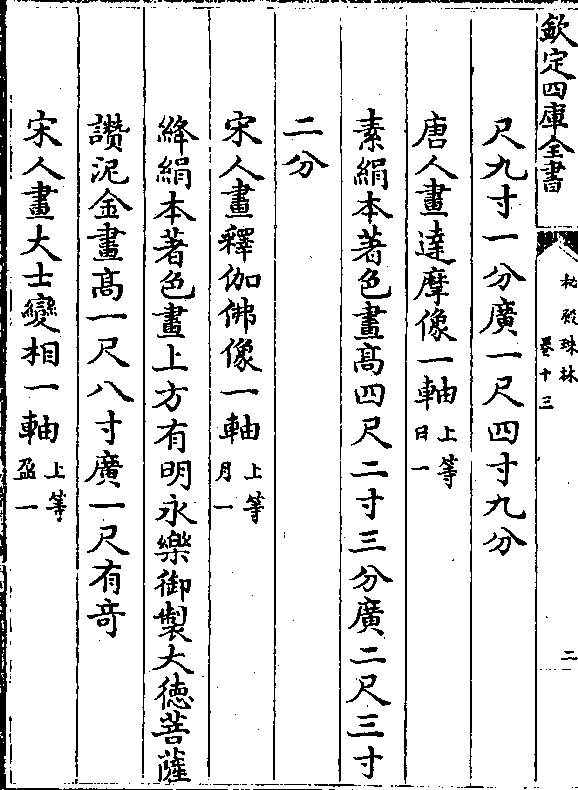 欽定四庫全書
秘殿珠林
卷十三
二
尺九寸一分廣一尺四寸九分
唐人畫達摩像一軸上等日一
素絹本著色畫高四尺二寸三分廣二尺三寸
二分
宋人畫釋伽佛像一軸上等月一
絳絹本著色畫上方有明永樂御製大德菩薩
讚泥金畫高一尺八寸廣一尺有奇
宋人畫大士變相一軸上等盈一